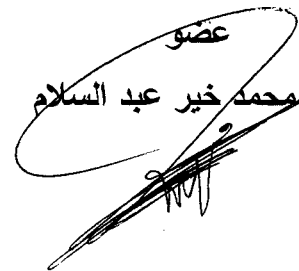 عضو
محمد خير عبد السلام